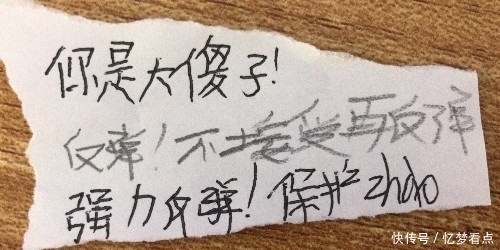 你是大傻子!
反弹!不接受再反弹
强力反弹!保护zhao
快传号/忆梦看点